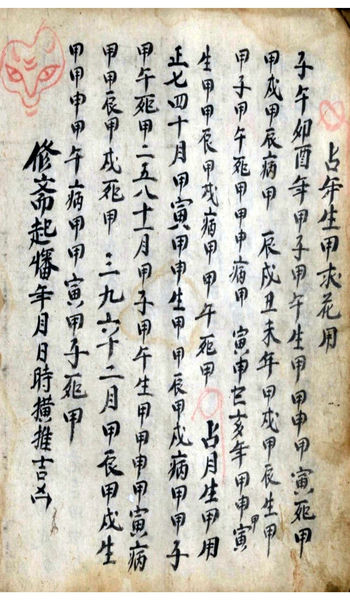 占年生甲求花用
子午卯酉年甲子甲午生甲甲申甲寅死甲
甲戌甲辰病甲 辰戌丑未年甲戌甲辰生甲
甲子甲午死甲甲申病甲 寅申巳亥年甲申甲寅
生甲甲辰甲戌病甲甲午死甲 占月生甲用
正七四十月甲寅甲申生甲甲辰甲戌病甲甲子
甲午死甲二五八十一月甲子甲午生甲甲申甲寅病
甲甲辰甲戌死甲 三九六十二月甲辰甲戌生
甲甲申甲午病甲甲寅甲子死甲
修斋起旛年月日時横推吉凶